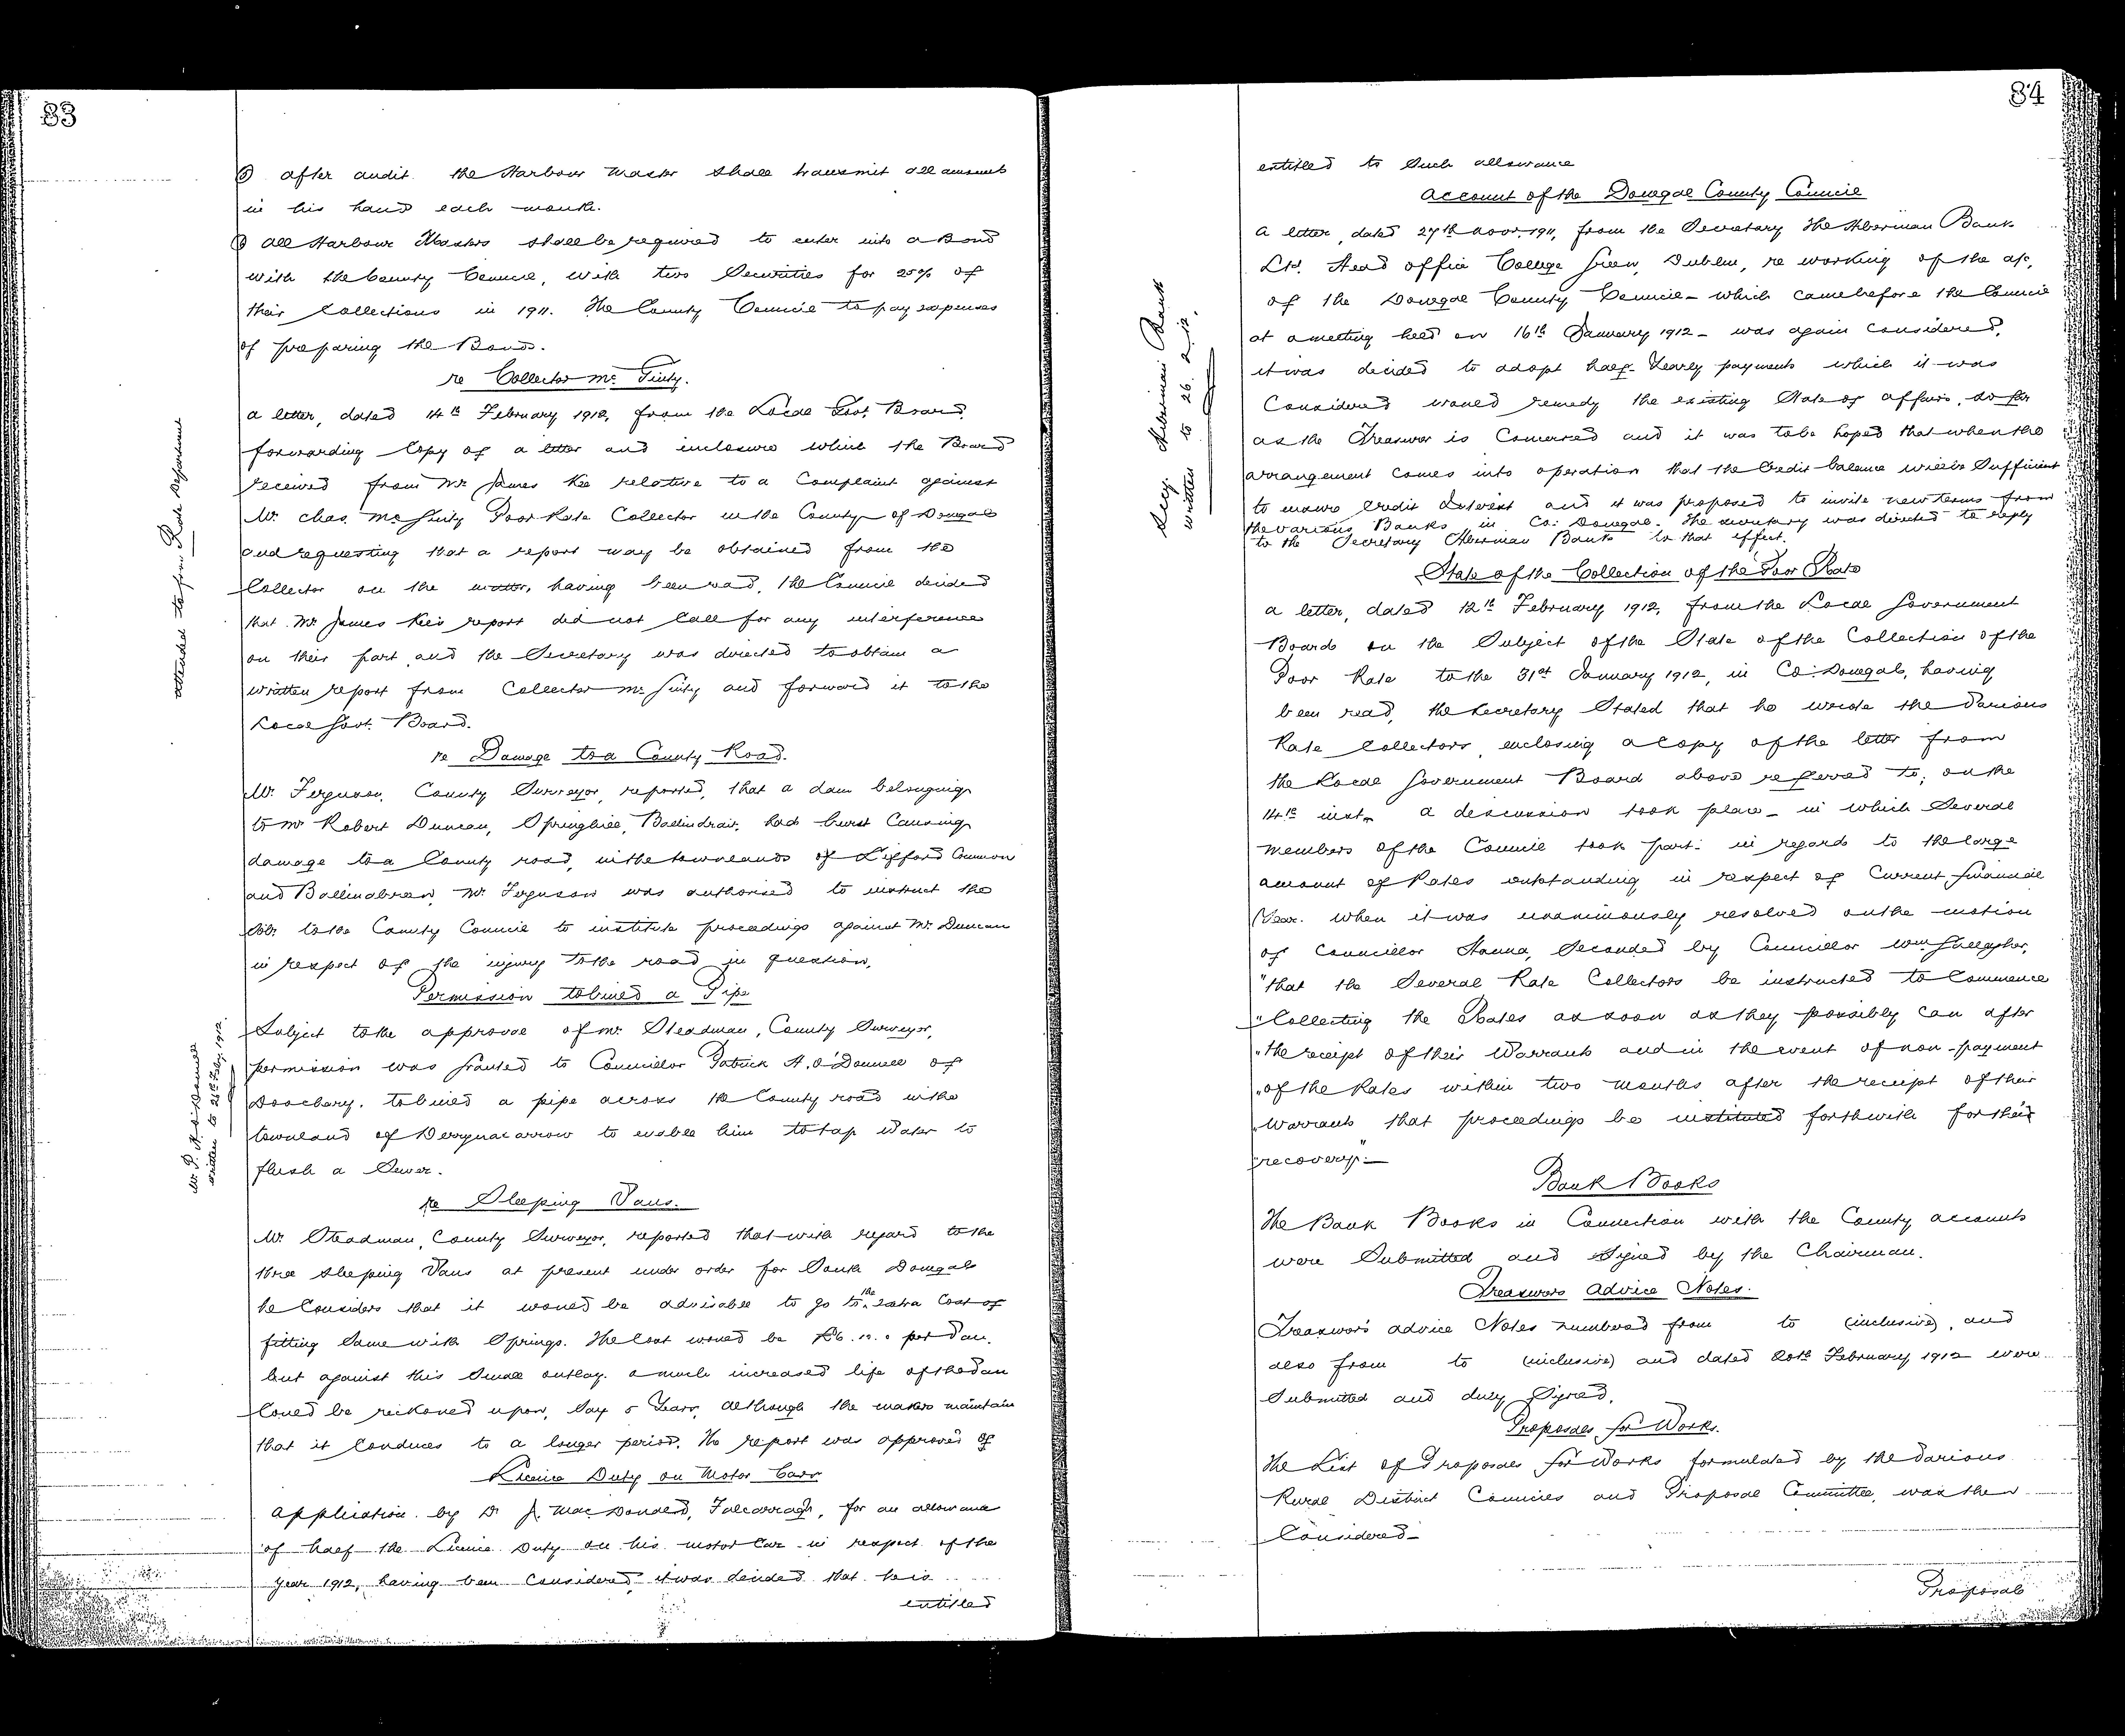 83
(5) after audit the Harbour Master shall transmit all amounts
in his hand each month.
(6) all Harbour Masters shall be required to enter into a Bond
with the County Council, with two Securities for 25% of
their Collections in 1911. The County Council to pay expenses
of preparing the Bond.
re Collector Mc Ginty.
a letter, dated 14th February 1912, from the Local Govt. Board
forwarding Copy of a letter and inclosure which the Board
received from Mr. James Kee relative to a Complaint against
Mr. Chas. McGinty Poor Rate Collector in the County of Donegal
and requesting that a report may be obtained from the
Collector on the matter, having been read, the Council decided
that Mr James Kee's report did not Call for any interference
on their part and the Secretary was directed to obtain a
written report from Collector McGinty and forward it to the
Local Govt. Board.
attended to from Rate Department
re Damage to a County Road.
Mr. Ferguson, County Surveyor, reported, that a dam belonging
to Mr Robert Duncan, Springhill, Ballindrait, had burst Causing
damage to a County road, in the townlands of Lifford Common
and Ballinabreen Mr. Ferguson was authorised to instruct the
Solr. to the County Council to institute proceedings against Mr. Duncan
in respect of the injury to the road in question.
Permission to bury a Pipe
Subject to the approval of Mr. Steadman, County Surveyor,
permission was granted to Councillor Patrick A. O'Donnell of
Doochary. to bury a pipe across the County road in the
townland of Derrynacarrow to enable him to tap water to
flush a Sewer.
Mr P. A. O'Donnell
written to 26th Feby. 1912
re Sleeping Vans.
Mr. Steadman, County Surveyor, reported that with regard to the
three sleeping Vans at present under order for South Donegal
he Considers that it would be advisable to go to the extra Cost of
fitting Same with Springs. The Cost would be £6. 10. 0 per Van.
but against this Small outlay a much increased life of the Van
Could be reckoned upon, Say 5 Years, although the makers maintain
that it Conduces to a longer period. The report was approved of
Licence Duty on Motor Cars
application by Dr J. MacDonald, Falcarragh, for an allowance
of half the Licence Duty on his motor Car in respect of the
year 1912, having been Considered it was decided that he is
entitled
84
entitled to Such allowance
Account of the Donegal County Council
a letter, dated 27th Novr. 1911, from the Secretary The Hibernian Bank
Ltd. Head office College Green, Dublin, re working of the a/c,
of the Donegal County Council - which came before the Council
at a meeting held on 16th January 1912 - was again Considered,
it was decided to adopt half-Yearly payments which it was
Considered would remedy the existing State of affairs, so far
as the Treasurer is Concerned and it was to be hoped that when the
arrangement Comes into operation that the Credit balance will be Sufficient
to ensure Credit Interest and it was proposed to invite new terms from
the various Banks in Co: Donegal. The Secretary was directed to reply
to the Secretary Hibernian Bank to that effect.
Secy. Hibernian Bank
written to 26.2.12.
State of the Collection of the Poor Rate
a letter, dated 12th February 1912, from the Local Government
Board on the Subject of the State of the Collection of the
Poor Rate to the 31st January 1912, in Co: Donegal, having
been read, the Secretary Stated that he wrote the Various
Rate Collectors enclosing a Copy of the letter from
the Local Government Board above referred to, on the
14th inst. a discussion took place - in which Several
members of the Council took part - in regard to the large
amount of Rates outstanding in respect of Current financial
Year. when it was unanimously resolved on the motion
of Councillor Hanna, Seconded by Councillor Wm Gallagher,
"that the Several Rate Collectors be instructed to Commence
"Collecting the Rates as soon as they possibly Can after
"the receipt of their Warrants and in the event of non-payment
"of the Rates within two months after the receipt of their
"Warrants that proceedings be instituted forthwith for their
"recovery."—
Bank Books
The Bank Books in Connection with the County accounts
were Submitted and Signed by the Chairman.
Treasurers advice Notes.
Treasurer's advice Notes numbered from to (inclusive), and
also from to (inclusive) and dated 20th February 1912 were
Submitted and duly Signed.
Proposals for Works.
The List of Proposals for Works formulated by the Various
Rural District Councils and Proposal Committee, was then
Considered—
Proposals